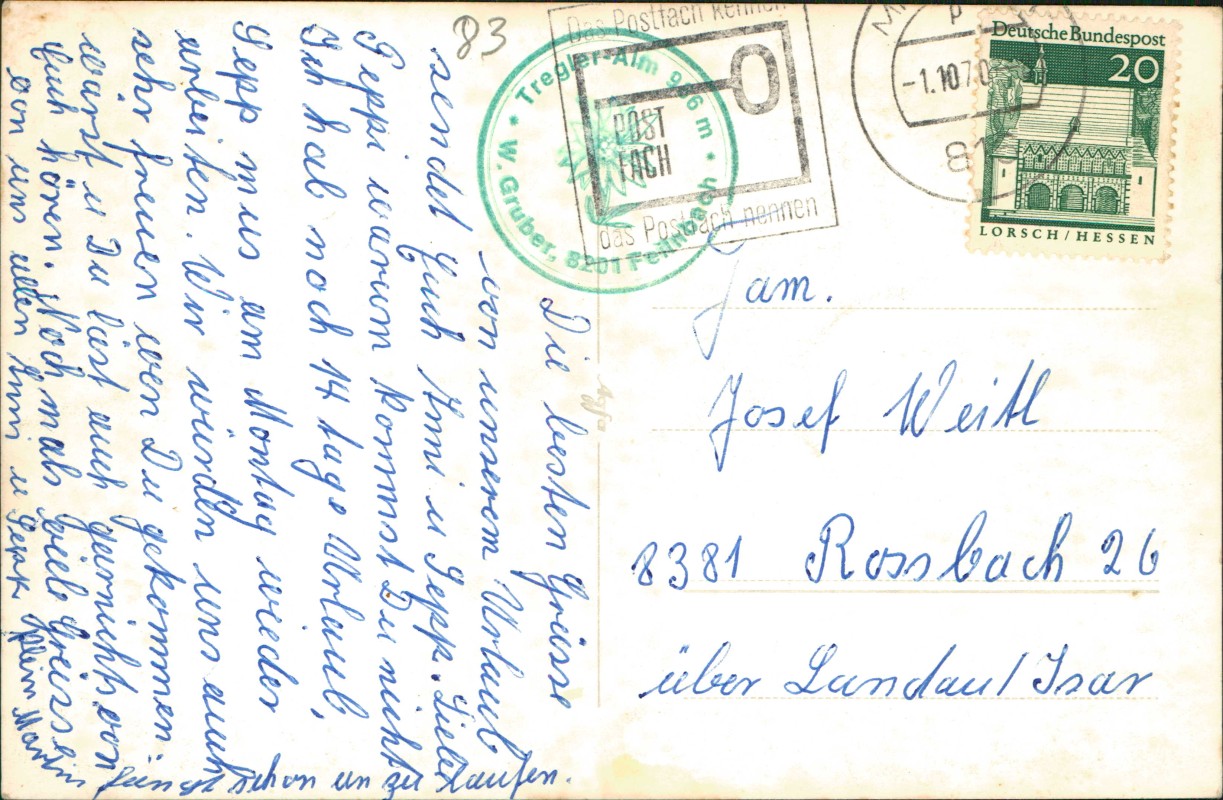 Die besten Grüsse
von unserem Urlaub
sendet Euch Anni u Sepp. Lieber
Peppi warum kommst Du nicht
Ich hab noch 14 tage Urlaub,
Sepp mus am Montag wieder
arbeiten. Wir würden uns auch
sehr freuen wen Du gekommen
wärst u Du läst auch garnichts von
Euch hören. Noch mals viele Grüsse
von uns allen Anni u Sepp
Klein Martin
fängt schon an zu laufen.
83
Tregler-Alm 9 6 m
W. Gruber, 8201
Das Postfach kennen
POST
FACH
das Postfach nennen
-1.10.70
81
Deutsche Bundespost
20
LORSCH/HESSEN
Fam.
Josef Weitl
8381 Rossbach 26
über Landau/Isar
Agfa